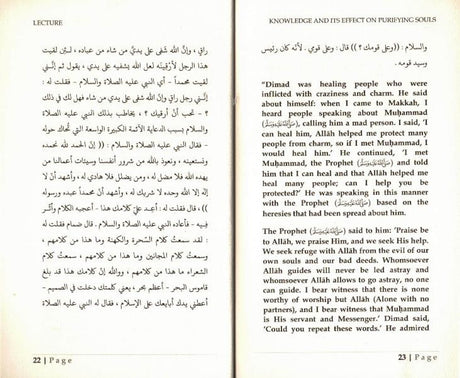 LECTURE
راقٍ ، وإنَّ الله شفى على يديَّ من شاء من عباده ، لئن لقيت
هذا الرجل لأَرْقِيَنَّه لعل الله يشفيه على يدي ، يقول ثم إنَّني
لقيت محمداً - أي النبي عليه الصلاة والسلام - فقلت له :
إنَّني رجل راقٍ وإن الله شفى على يدي من شاء فهل لك في ذلك
؟ - تحب أنْ أرقيك ؟ ، يخاطب بذلك النبي عليه الصلاة
والسلام بسبب الدعاية الأثمة الكبيرة الواسعة التي تُحاك حوله
- فقال النبي عليه الصلاة والسلام : (( إنَّ الحمد لله نحمده
ونستعينه ، ونعوذ بالله من شرور أنفسنا وسيئات أعمالنا من
يهده الله فلا مضل له ، ومن يضلل فلا هادي له ، وأشهد أن لا
إله إلا الله وحده لا شريك له ، وأشهد أن محمداً عبده ورسوله
)) ، قال فقلت له : أعِد عليَّ كلامك هذا - أعجبه الكلام وأثر
فيه - فأعاده النبي عليه الصلاة والسلام . قال ضمام فقلت له
: لقد سمعتُ كلام السَّحرة والكهنة وما هذا من كلامهم ،
وسمعتُ كلام المجانين وما هذا من كلامهم ، سمعتُ كلام
الشعراء ما هذا من كلامهم ، ووالله إنَّ كلامك هذا قد بلغ
قاموس البحر - أعظم بحر ، يعني كلمتك دخلت في الصميم -
أعطني يدك أبايعك على الإسلام ، فقال له النبي عليه الصلاة
22 | P a g e
KNOWLEDGE AND ITS EFFECT ON PURIFYING SOULS
والسلام : ((وعلى قومك ؟ )) قال : وعلى قومي . لأنه كان رئيس
وسيد قومه .
"Dimad was healing people who were
inflicted with craziness and charm. He said
about himself: when I came to Makkah, I
heard people speaking about Muḥammad
(ﷺ), calling him a mad person. I said, 'I
can heal him, Allāh helped me protect many
people from charm, so if I met Muḥammad, I
would heal him.' He continued, 'I met
Muḥammad, the Prophet (ﷺ) and told
him that I can heal and that Allāh helped me
heal many people; can I help you be
protected?' He was speaking in this manner
with the Prophet (ﷺ) based on the
heresies that had been spread about him.
The Prophet (ﷺ) said to him: 'Praise be
to Allāh, we praise Him, and we seek His help.
We seek refuge with Allāh from the evil of our
own souls and our bad deeds. Whomsoever
Allāh guides will never be led astray and
whomsoever Allāh allows to go astray, no one
can guide. I bear witness that there is none
worthy of worship but Allāh (Alone with no
partners), and I bear witness that Muḥammad
is His servant and Messenger.' Dimad said,
'Could you repeat these words.' He admired
23 | P a g e